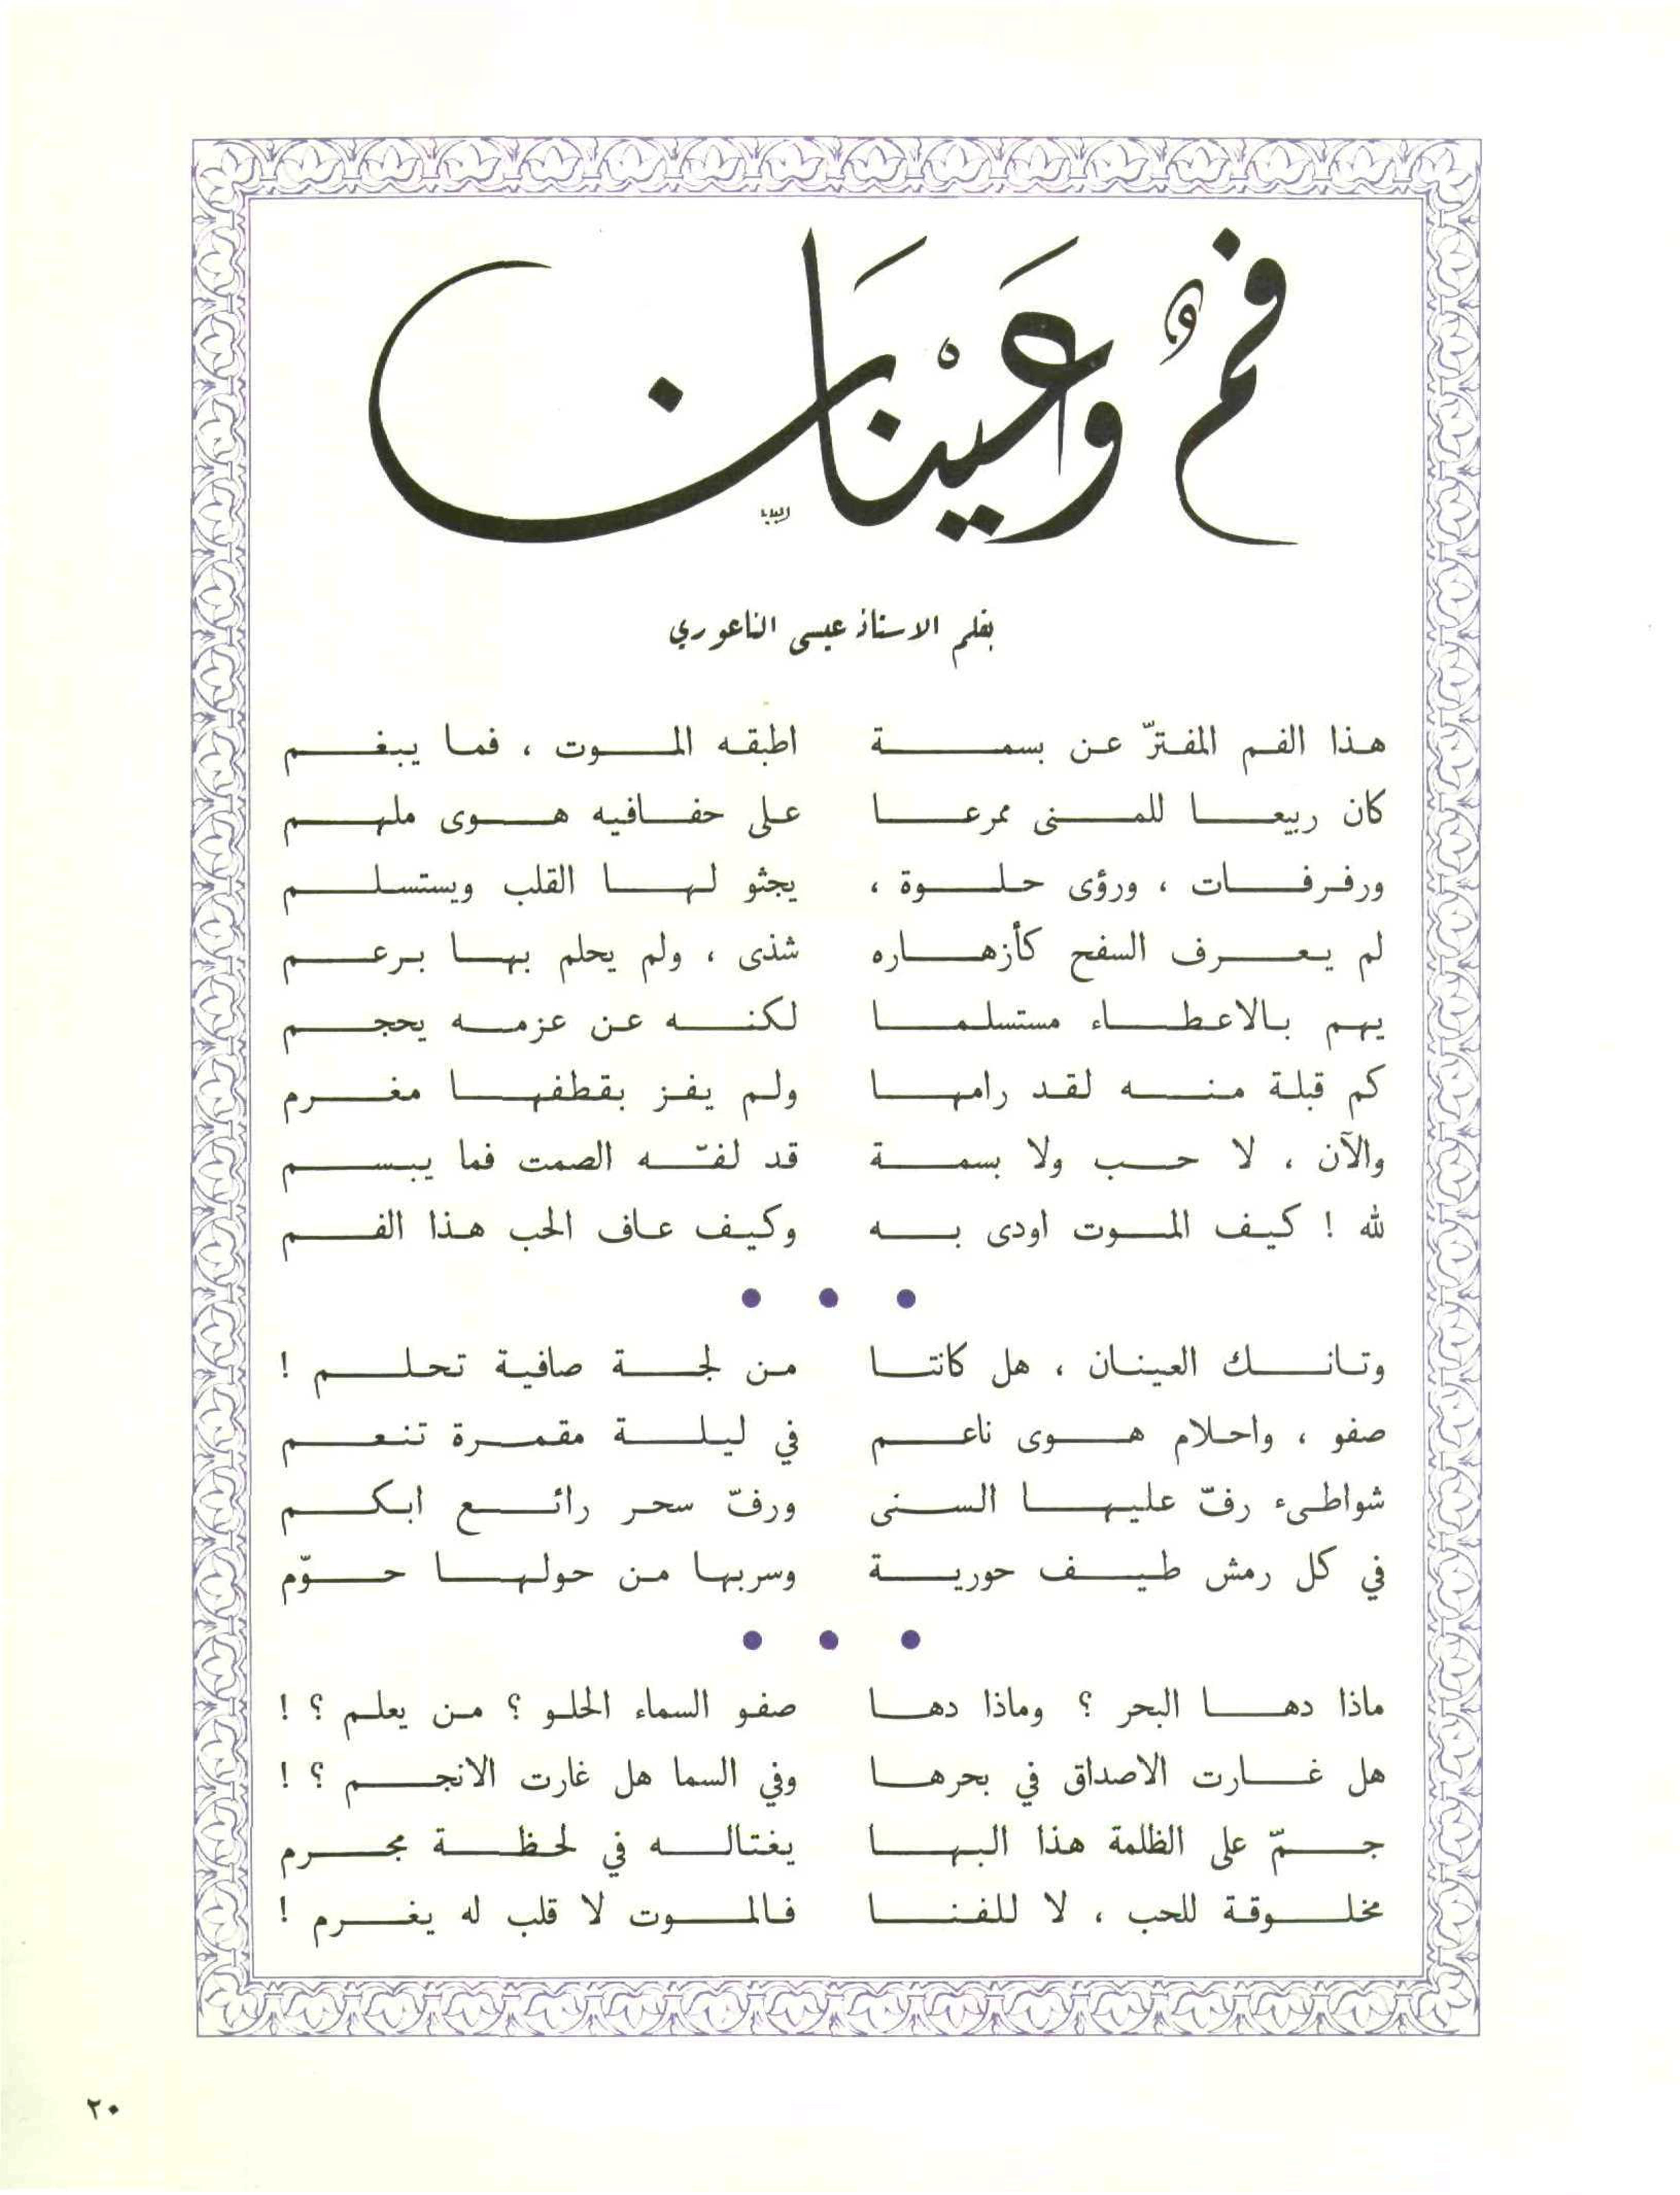 فمٌ وَعَيْنَان
بقلم الاستاذ عيسى الناعوري
هذا الفم المفترّ عن بسمة اطبقه الموت ، فما يبغم
كان ربيعا للمنى ممرعا على حفافيه هوى ملهم
ورفرفات ، ورؤى حلوة ، يجثو لها القلب ويستسلم
لم يعرف السفح كأزهاره شذى ، ولم يحلم بها برعم
يهم بالاعطاء مستسلما لكنه عن عزمه يحجم
كم قبلة منه لقد رامها ولم يفز بقطفها مغرم
والآن ، لا حب ولا بسمة قد لفّه الصمت فما يبسم
لله ! كيف الموت اودى به وكيف عاف الحب هذا الفم
• • •
وتانك العينان ، هل كانتا من لجة صافية تحلم !
صفو ، واحلام هوى ناعم في ليلة مقمرة تنعم
شواطىء رفّ عليها السنى ورفّ سحر رائع ابكم
في كل رمش طيف حورية وسربها من حولها حوّم
• • •
ماذا دها البحر ؟ وماذا دها صفو السماء الحلو ؟ من يعلم ؟ !
هل غارت الاصداق في بحرها وفي السما هل غارت الانجم ؟ !
جمّ على الظلمة هذا البها يغتاله في لحظة مجرم
مخلوقة للحب ، لا للفنا فالموت لا قلب له يغرم !
٢٠